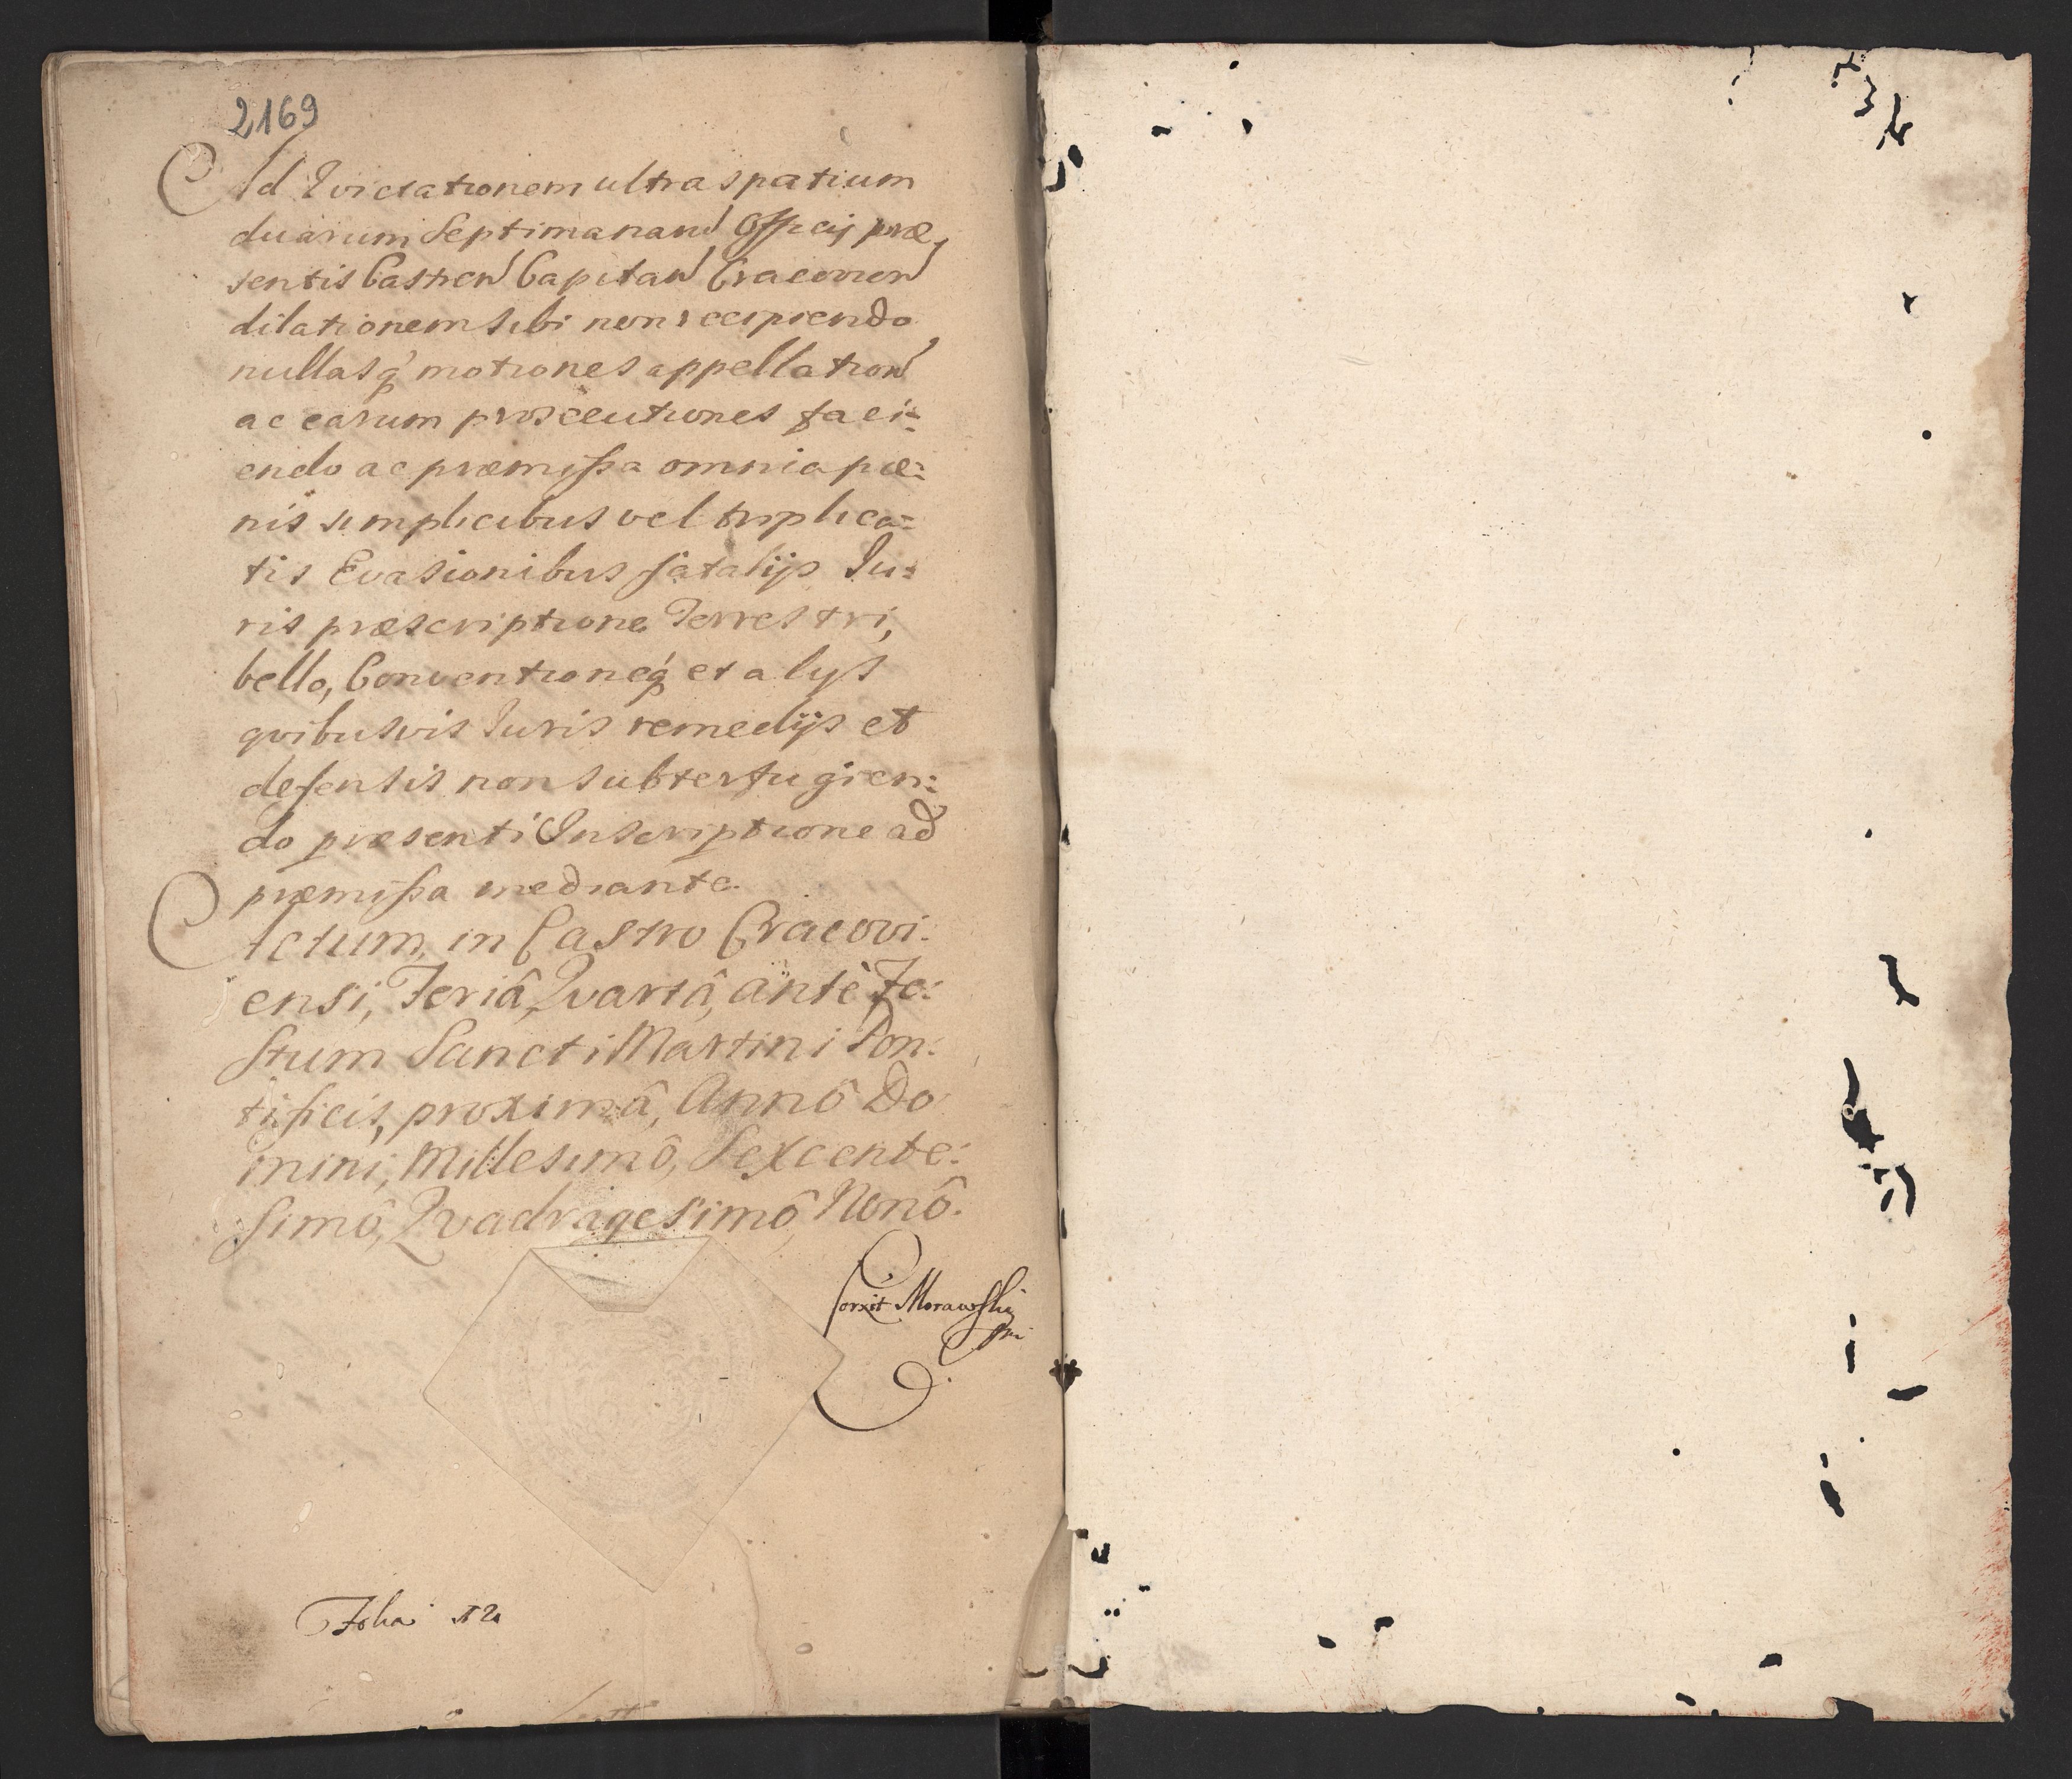 2169
Ad Evictationem ultra spatium
duarum Septimanarum Officij præ,
sentis Castren Capitan Cracovien
dilationem sibi non recipiendo
nullasq motiones appellation
ac earum prosecutiones faci:
endo ac præmissa omnia pœ:
nis simplicibus vel triplica:
tis Evasionibus fatalijs Iu:
ris præscriptione Terrestri,
bello, Conventioneq et alys
qvibusvis Iuris remedijs et
defensis non subterfugien:
do præsenti Inscriptione ad
præmissa mediante.
Actum, in Castro Cracovi:
ensi, Feriâ, Qvartâ, antè Fe:
stum Sancti Martini Pon:
tificis, proximâ, Annô Do
mini, Millesimô, Sexcente:
simô, Qvadragesimô Nonô.
Corxit Morawskij
mp
Folia 12